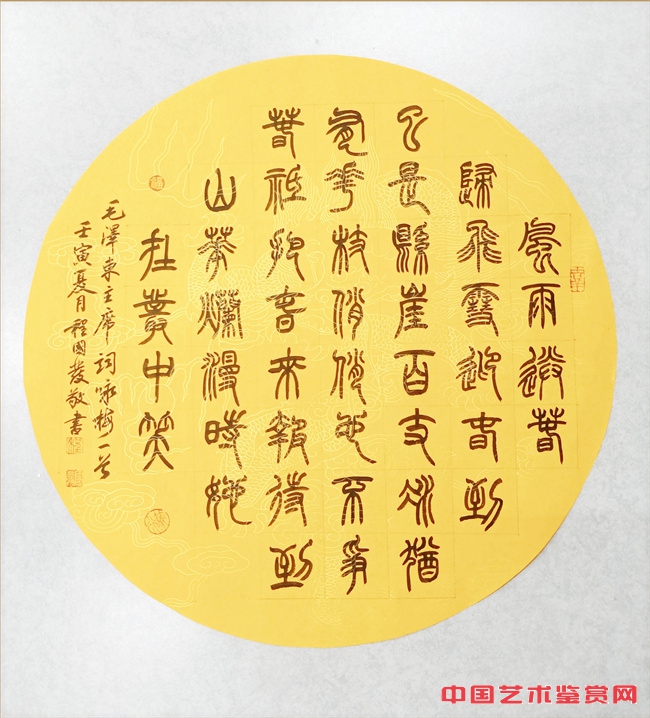 風雨送春
歸飛雪迎春到
已是縣崖百丈冰猶
有花枝俏俏也不爭
春祇把春來報待到
山花爛漫時她
在叢中笑
毛澤東主席詞咏梅一首
壬寅夏月程國發敬書
中国艺术鉴赏网